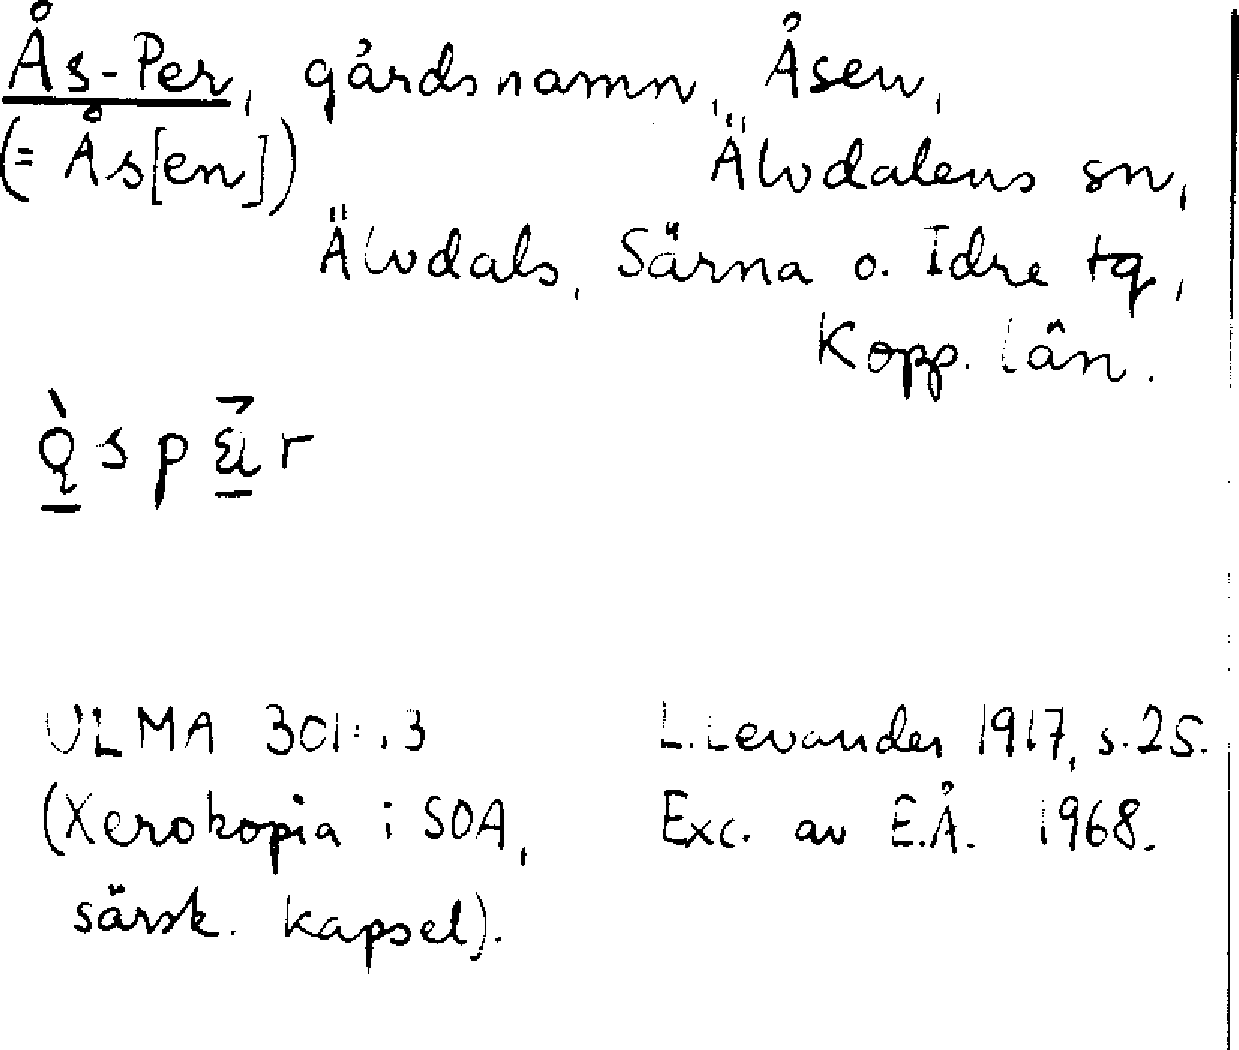 Ås-Per, gårdsnamn, Åsen,
(= Ås[en]) Älvdalens sn,
Älvdals, Särna o. Idre tg,
Kopp. län.
L. Levander 1917, s. 25.
ULMA 301:
(Xerokopia i SOA,
särsk. kapsel).
Exc. av E.Å. 1968.